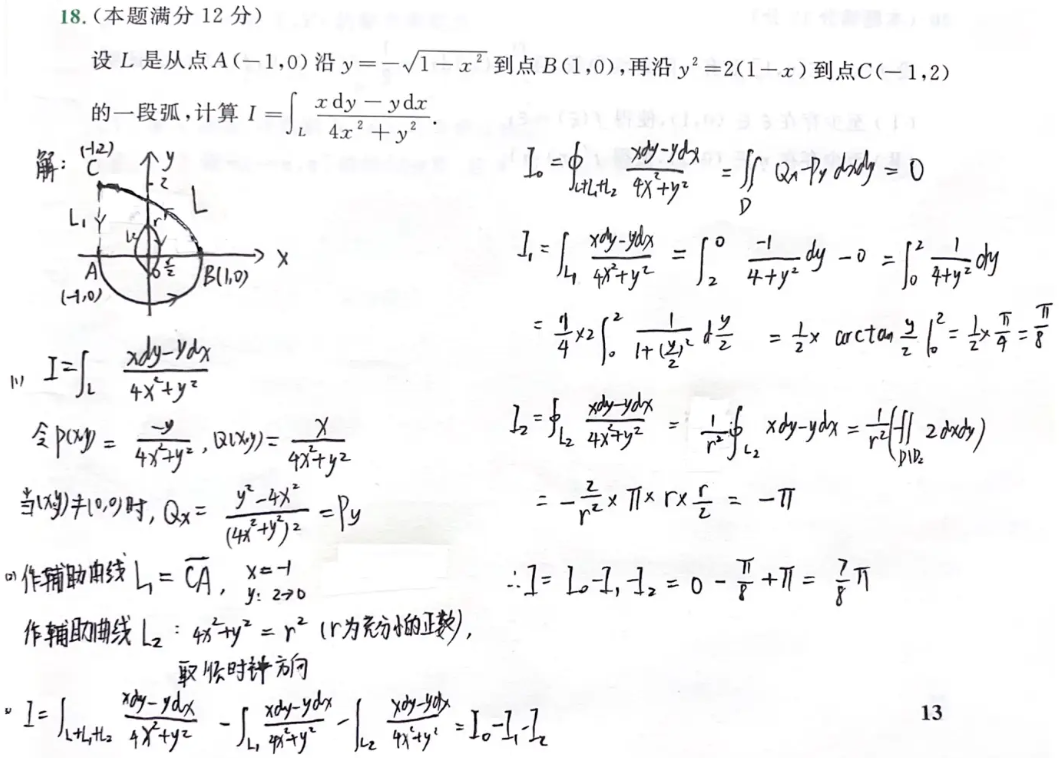 18.(本题满分 12 分)
设 L 是从点A(-1,0)沿 y=-√(1-x²) 到点B(1,0),再沿 y²=2(1-x)到点C(-1,2)
的一段弧,计算 I=∫_L (xdy-ydx)/(4x²+y²).
解:
(-1,2)
C
y
2
L
L₁
L₂
r
r/2
0
x
A
(-1,0)
B(1,0)
(1) I=∫_L (xdy-ydx)/(4x²+y²)
令P(x,y)= -y/(4x²+y²), Q(x,y)= x/(4x²+y²)
当(x,y)≠(0,0)时, Qx= (y²-4x²)/(4x²+y²)² =Py
(2) 作辅助曲线 L₁= CA, x=-1 y: 2→0
作辅助曲线 L₂: 4x²+y²=r² (r为充分小的正数),
取顺时针方向
I=∫_{L+L₁+L₂} (xdy-ydx)/(4x²+y²) - ∫_{L₁} (xdy-ydx)/(4x²+y²) - ∫_{L₂} (xdy-ydx)/(4x²+y²) = I₀-I₁-I₂
I₀=∮_{L+L₁+L₂} (xdy-ydx)/(4x²+y²) = ∬_D Qx-Py dxdy = 0
I₁=∫_{L₁} (xdy-ydx)/(4x²+y²) = ∫₂⁰ -1/(4+y²) dy -0 = ∫₀² 1/(4+y²) dy
= 1/4 ×2∫₀² 1/(1+(y/2)²) d y/2 = 1/2 × arctan y/2 |₀² = 1/2 × π/4 = π/8
I₂=∮_{L₂} (xdy-ydx)/(4x²+y²) = 1/r² ∮_{L₂} xdy-ydx = 1/r² (-∬_{D₂} 2dxdy)
= -2/r² × π × r × r/2 = -π
∴I= I₀-I₁-I₂ = 0 - π/8 + π = 7/8 π
13